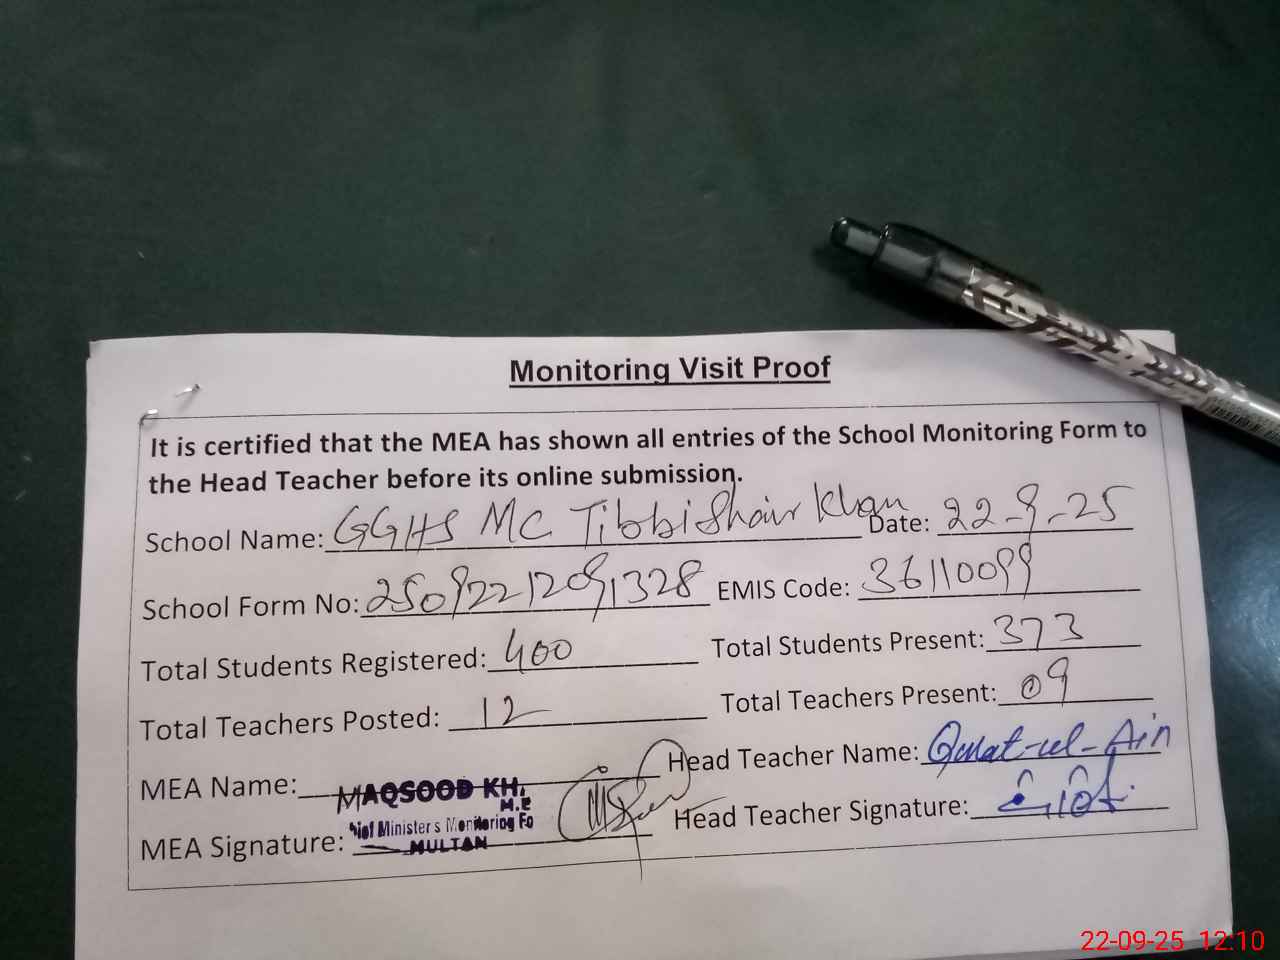 Monitoring Visit Proof
It is certified that the MEA has shown all entries of the School Monitoring Form to
the Head Teacher before its online submission.
School Name: GGHS MC Tibbi Shair Khan Date: 22-9-25
School Form No: 25092212091328 EMIS Code: 36110099
Total Students Registered: 400 Total Students Present: 373
Total Teachers Posted: 12 Total Teachers Present: 09
MEA Name: MAQSOOD KH. Head Teacher Name: Qurat-ul-Ain
M.E
hief Minister s Monitoring Fo
MEA Signature: MULTAN Head Teacher Signature:
22-09-25 12:10